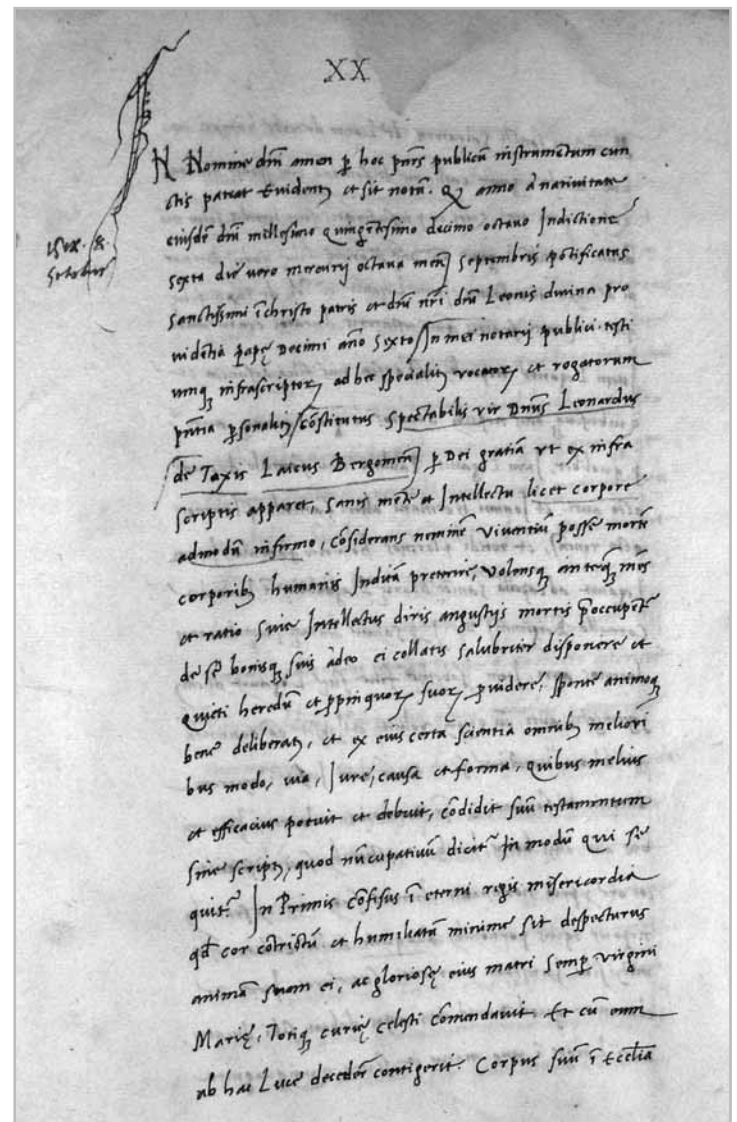 XX
N Nomine dñi amen p hoc pñs publicũ instrumentum cun
ctis pateat Evidentʒ et sit notũ. Qʒ anno à nativitate
eiusdẽ dñi millesimo quingentesimo decimo octavo Indictione
sexta die vero mercurij octava menʒ Septembris põtificatus
Sanctissimi ĩ christo patris et dñi nr̃i dñi Leonis divina pro
videntia pape Decimi anõ Sexto/In mei notarij publici testi
umqʒ infrascriptorʒ ad hec specialitʒ vocatorʒ et rogatorum
pñtia psonalitʒ/cõstitutus Spectabilis vir Dñus Leonardus
de Taxis Laicus Bergomenʒ p Dei gratiã vt ex infra
scriptis apparet, Sanis mẽte et Intellectu licet corpore
admodũ infirmo, cõsiderans neminẽ viventiũ posse mortẽ
corporibʒ humanis Indictã preterire, volensqʒ anteqʒ mẽs
et ratio Sive Intellectus diris angustijs mortis p̃occupentʳ
de sẽ bonisqʒ suis àdeo ei collatis salubriter disponere et
quieti heredũ et ppinquorʒ suorʒ pvidere, sponte animoqʒ
bene deliberatʒ, et ex eius certa scientia omnibʒ meliori
bus modo, via, Iure, causa et forma, quibus melius
et efficacius potuit et debuit, cõdidit suũ testamentum
sine scriptʒ, quod nũcupativũ dicitʳ In modũ qui se
quitʳ. In Primis cõfisus ĩ eterni regis misericordia
qd̃ cor cõtrictũ et humiliatũ minime sit despecturus
animã suam ei, ac gloriosę eius matri Semp virgini
Marię, Totiqʒ curię celesti cõmendavit. Et cũ eum
ab hac Luce decederẽ contigerit. Corpus suũ ĩ Eccl̃ia